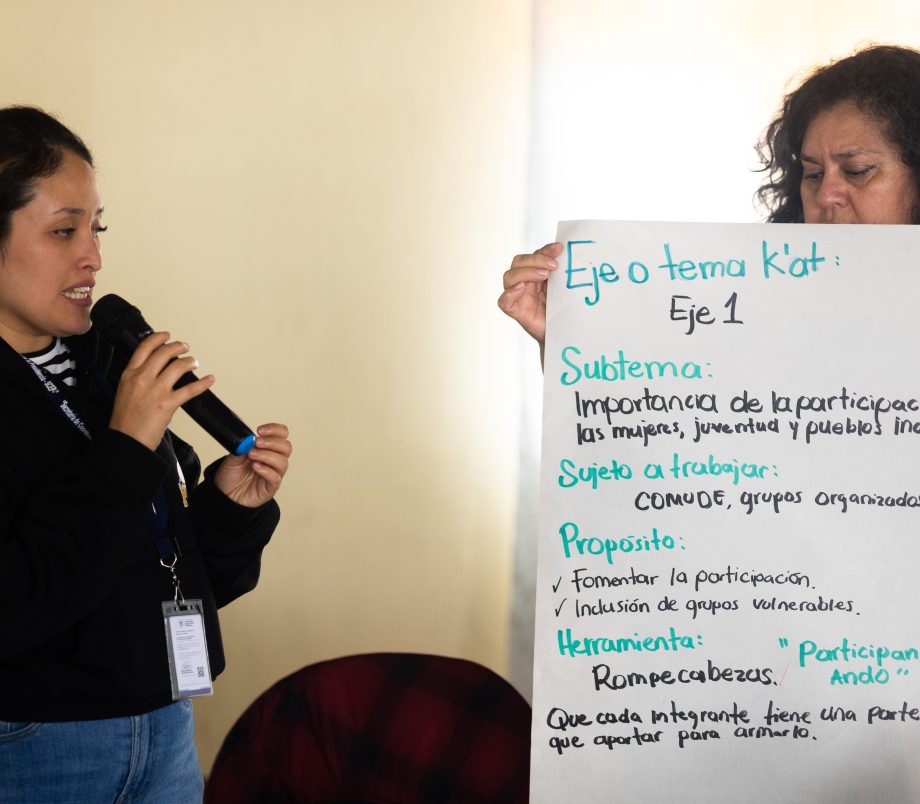 Eje o tema k'at:
Eje 1
Subtema:
Importancia de la participac
las mujeres, juventud y pueblos ind
Sujeto a trabajar:
COMUDE, grupos organizados
Propósito:
✓ Fomentar la participación.
✓ Inclusión de grupos vulnerables.
Herramienta:
Rompecabezas.
"Participan
Ando"
Que cada integrante tiene una parte
que aportar para armarlo.